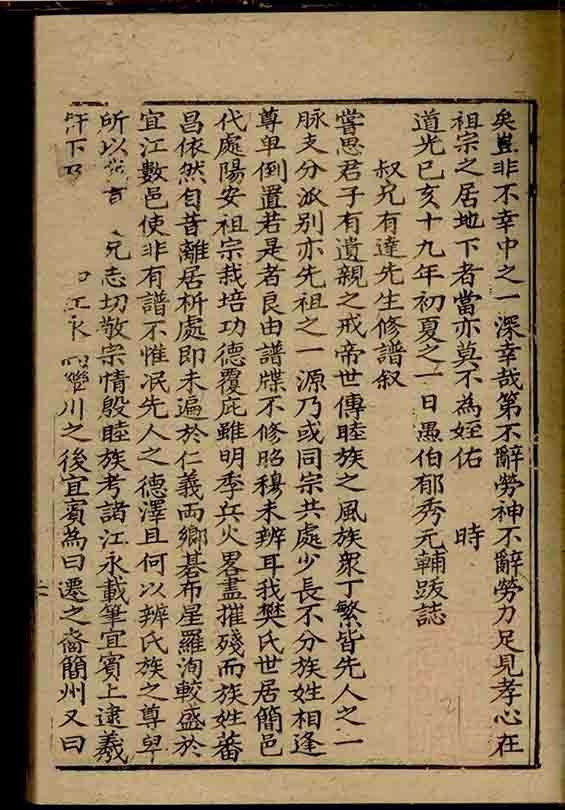 矣豈非不幸中之一深幸哉第不辭勞神不辭勞力足見孝心在
祖宗之居地下者當亦莫不為姪佑　時
道光已亥十九年初夏之一日愚伯郁秀元輔跋誌
叔兄有達先生修譜叙
嘗思君子有遺親之戒帝世傳睦族之風族衆丁繁皆先人之一
脉支分派別亦先祖之一源乃或同宗共處少長不分族姓相逢
尊卑倒置若是者良由譜牒不修昭穆未辨耳我樊氏世居簡邑
代處陽安祖宗栽培功德覆庇雖明季兵火畧盡摧殘而族姓蕃
昌依然自昔離居析處即未遍於仁義両鄉碁布星羅洵較盛於
宜江數邑使非有譜不惟泯先人之德澤且何以辨氏族之尊卑
所以 兄志切敬宗情殷睦族考諸江永載筆宜賓上逮羲
下 江永 川之後宜賓為曰遷之裔簡州又曰